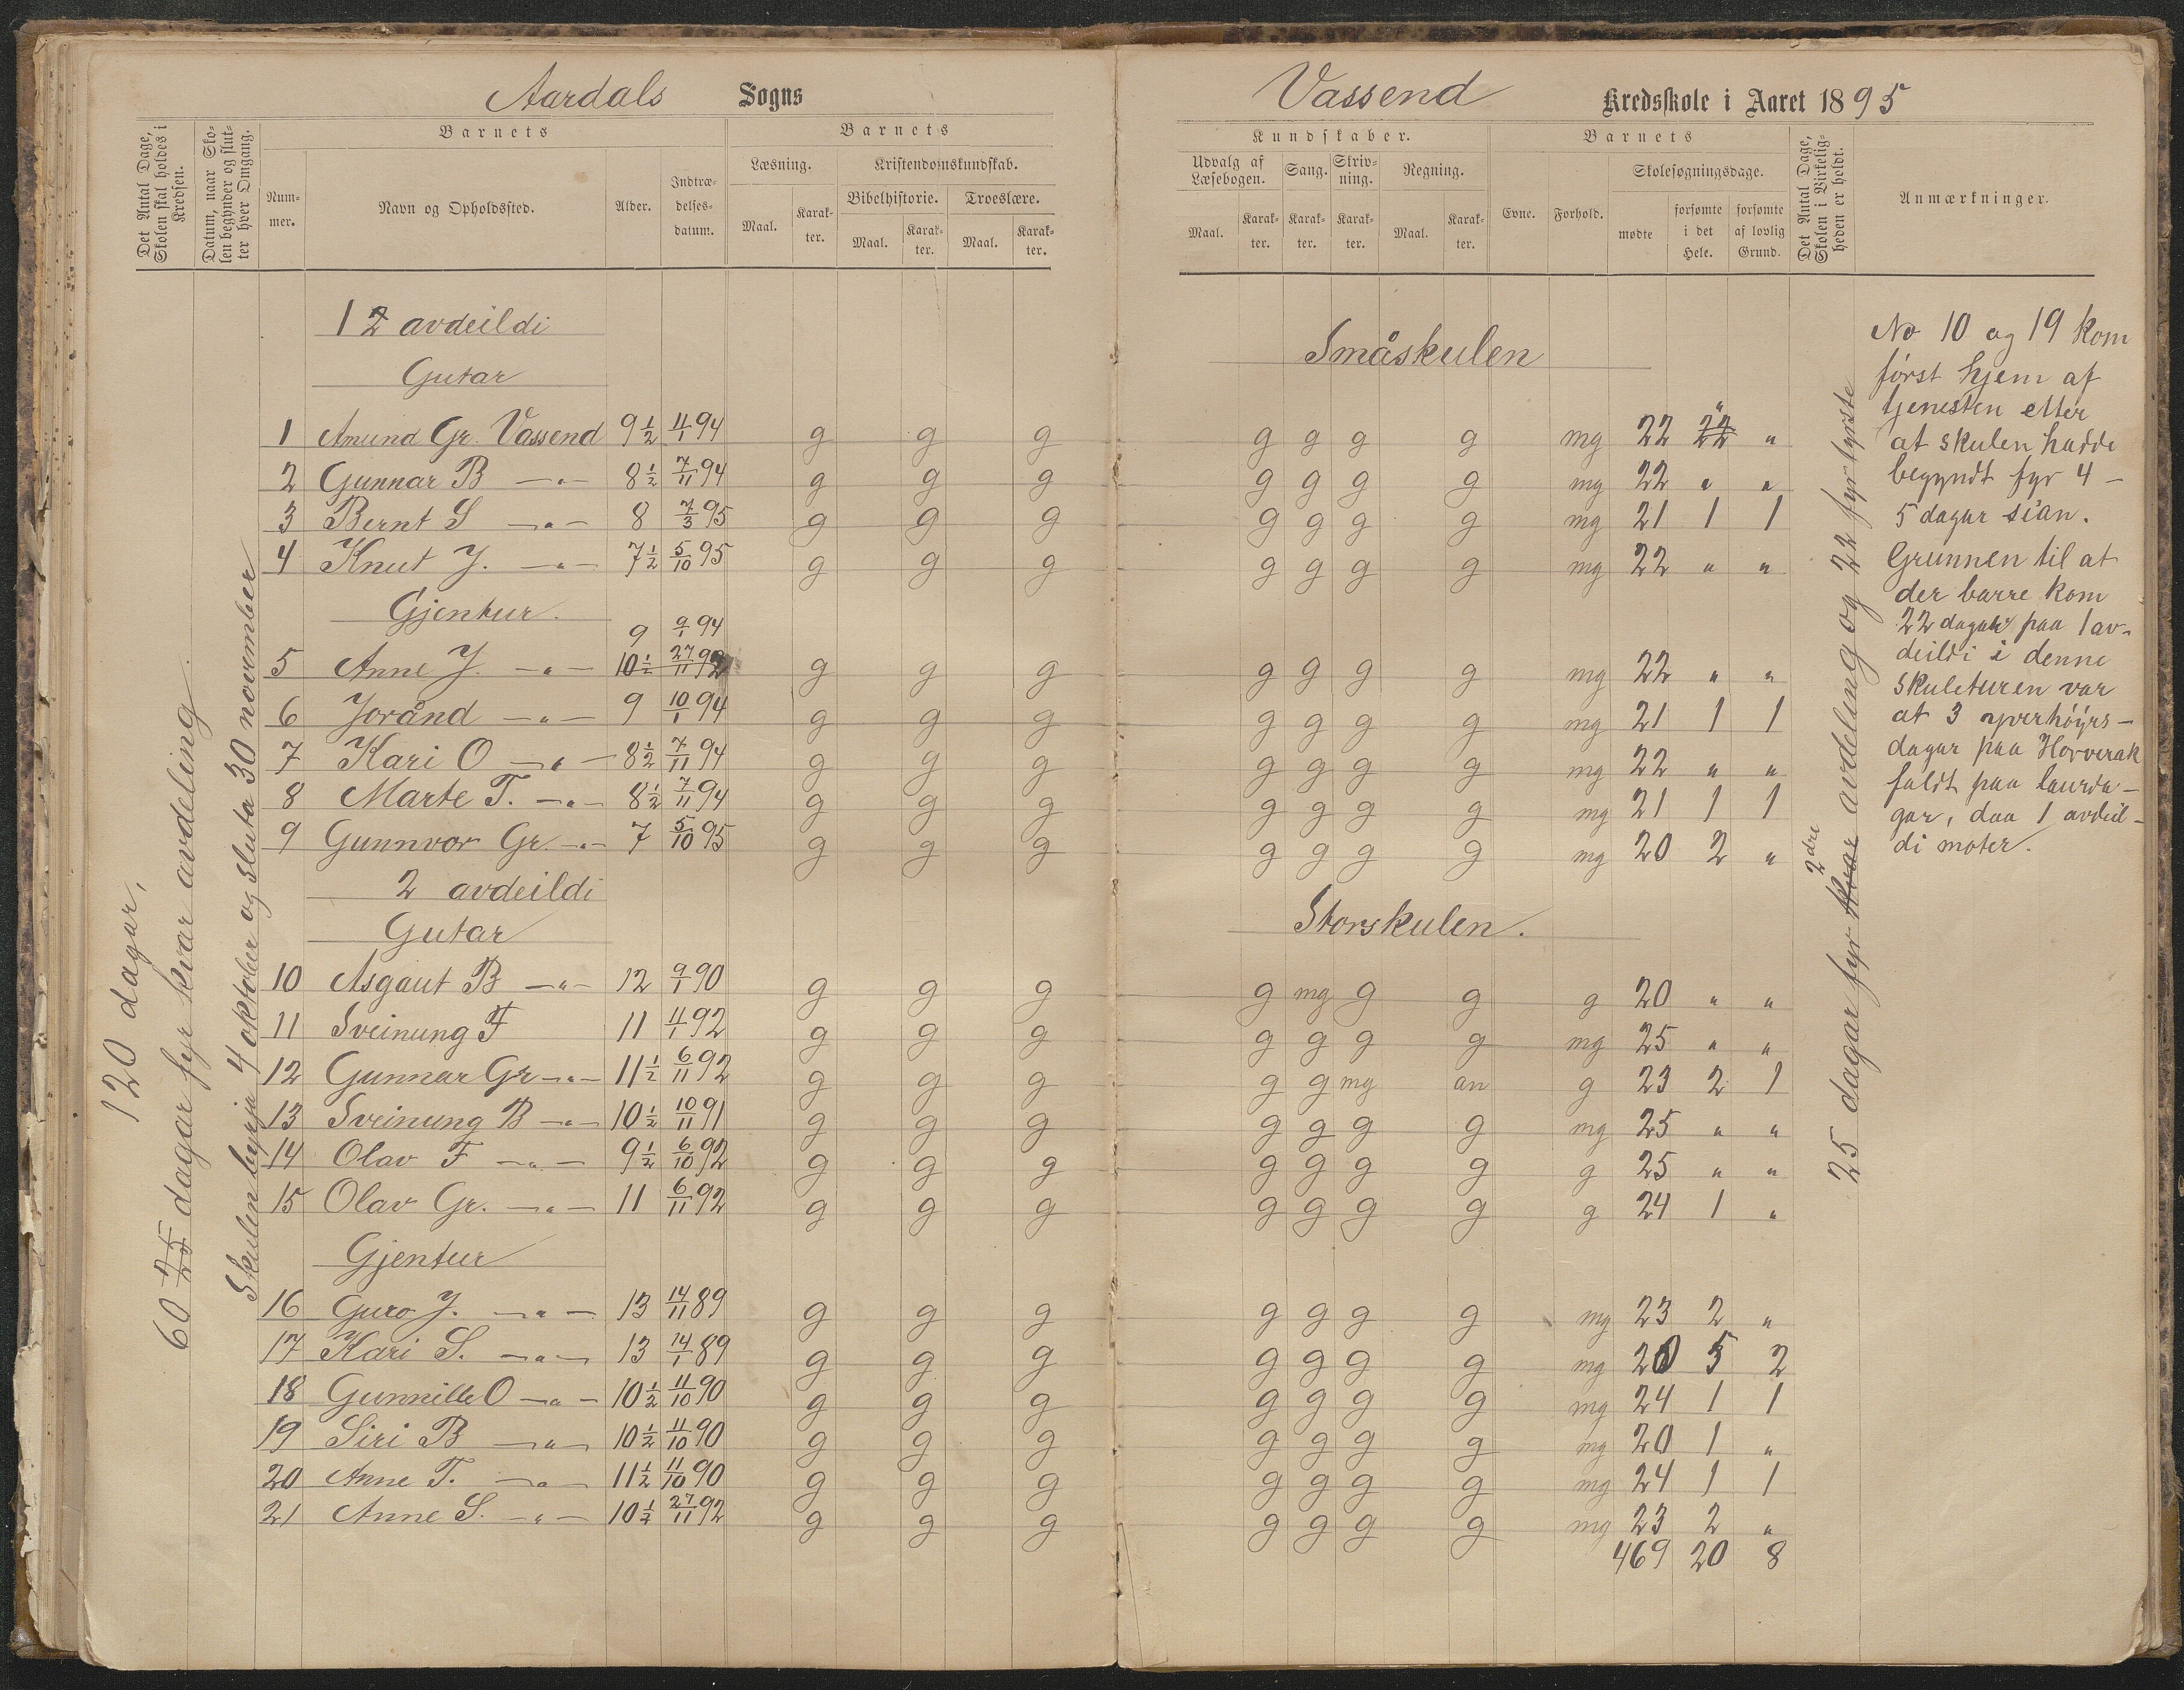 Aardals Sogns
Det Antal Dage, Skolen skal holdes i Kredsen.
Datum, naar Skolen begynder og slutter hver Omgang.
Barnets
Nummer.
Navn og Opholdssted.
Alder.
Indtrædelsesdatum.
Barnets
Læsning.
Kristendomskundskab.
Bibelhistorie.
Troeslære.
Maal. Karakter. Maal. Karakter. Maal. Karakter.
120 dagar,
60 25 dagar fyr kvar avdeling
Skulen byrja 4 oktober og sluta 30 november
1 2 avdeildi
Gutar
1 Amund Gr. Vassend 9 1/2 11/1 94 g g g
2 Gunnar B -"- 8 1/2 7/11 94 g g g
3 Bernt S -"- 8 7/3 95 g g g
4 Knut J. -"- 7 1/2 5/10 95 g g g
Gjentur.
9 9/1 94
5 Anne J. -"- 10 1/2 27/11 92 g g g
6 Jorånd -"- 9 10/1 94 g g g
7 Kari O -"- 8 1/2 7/11 94 g g g
8 Marte T. -"- 8 1/2 7/11 94 g g g
9 Gunnvor Gr. -"- 7 5/10 95 g g g
2 avdeildi
Gutar
10 Asgaut B -"- 12 9/1 90 g g g
11 Sveinung F 11 11/1 92 g g g
12 Gunnar Gr -"- 11 1/2 6/11 92 g g g
13 Sveinung B -"- 10 1/2 10/11 91 g g g
14 Olav F -"- 9 1/2 6/10 92 g g g
15 Olav Gr. -"- 11 6/11 92 g g g
Gjentur
16 Guro J. -"- 13 14/11 89 g g g
17 Kari S. -"- 13 14/1 89 g g g
18 Gunnille O -"- 10 1/2 11/10 90 g g g
19 Siri B -"- 10 1/2 11/10 90 g g g
20 Anne T. -"- 11 1/2 11/10 90 g g g
21 Anne S. -"- 10 1/2 27/11 92 g g g
Vassend Kredsskole i Aaret 1895
Kundskaber.
Udvalg af Læsebogen.
Sang.
Skrivning.
Regning.
Maal. Karakter. Karakter. Karakter. Maal. Karakter.
Barnets
Evne. Forhold.
Skolesøgningsdage.
mødte
forsømte i det Hele.
forsømte af lovlig Grund.
Det Antal Dage, Skolen i Virkeligheden er holdt.
Anmærkninger.
Småskulen
g g g g mg 22 22 " "
g g g g mg 22 " "
g g g g mg 21 1 1
g g g g mg 22 " "
g g g g mg 22 " "
g g g g mg 21 1 1
g g g g mg 22 " "
g g g g mg 21 1 1
g g g g mg 20 2 "
Storskulen.
g mg g g g 20 " "
g g g g mg 25 " "
g g mg an g 23 2 1
g g g g mg 25 " "
g g g g g 25 " "
g g g g g 24 1 "
g g g g mg 23 2 "
g g g g mg 20 5 2
g g g g mg 24 1 1
g g g g mg 20 1 "
g g g g mg 24 1 1
g g g g mg 23 2 "
469 20 8
25 dagar fyr Kvar 2dre avdeling og 22 fyr fyrste
No 10 og 19 kom
først hjem af
tjenesten etter
at skulen hadde
begyndt fyr 4 -
5 dagar sian.
Grunnen til at
der barre kom
22 dagar paa 1 av-
deildi i denne
skuleturen var
at 3 yverhøyrs-
dagar paa Hovverak
faldt paa laurda-
gar, daa 1 avdeil-
di møter.